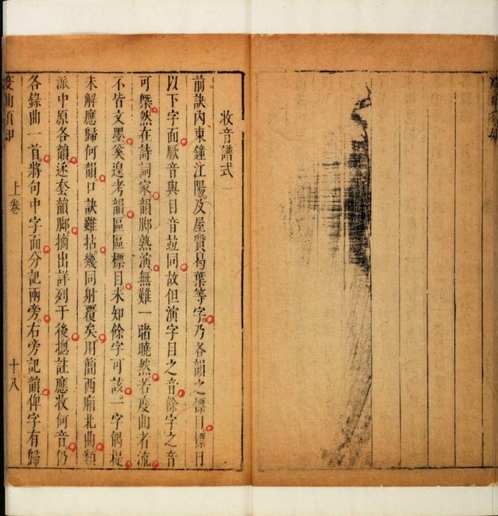 收音譜式
前訣內東鐘江陽及屋質曷葉等字乃各韻之標目標目
以下字面厥音與目音並同故但演字目之音餘字之音
可槩然在詩詞家韻腳熟演無難一睹曉然若度曲者流
不皆文墨奚遑考韻區區標目未知餘字可該二字偶提
未解應歸何韻口訣難拈幾同射覆矣用簡西廂北曲類
派中原各韻逐套韻腳摘出詳列于後摠註應收何音仍
各錄曲一首將句中字面分記兩旁右旁記韻俾字有歸
度曲須知 上卷 十八